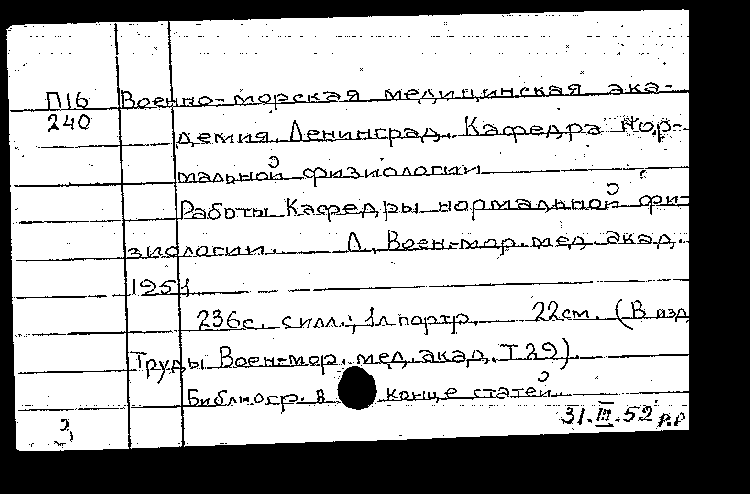 П16 Военно-морская медицинская ака-
240 демия. Ленинград. Кафедра нор-
мальной физиологии
Работы Кафедры нормальной фи-
зиологии. Л. Воен-мор. мед. акад.
1951
236с. с илл.; 1л портр. 22см. (В изд
Труды Воен-мор. мед. акад. Т 29).
Библиогр. в конце статей
31.III.52